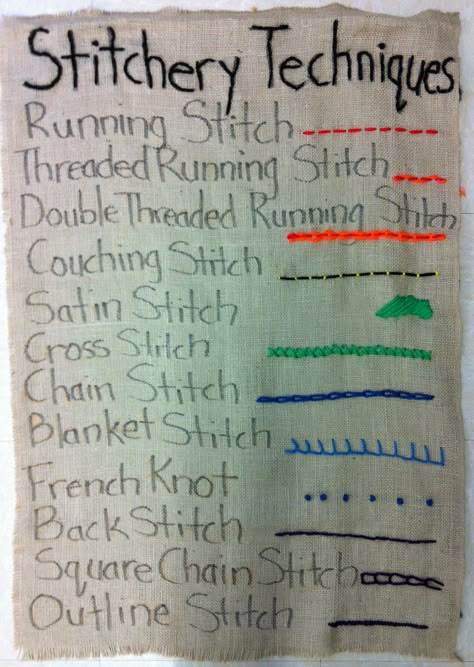 Stitchery Techniques
Running Stitch
Threaded Running Stitch
Double Threaded Running Stitch
Couching Stitch
Satin Stitch
Cross Stitch
Chain Stitch
Blanket Stitch
French Knot
Back Stitch
Square Chain Stitch
Outline Stitch